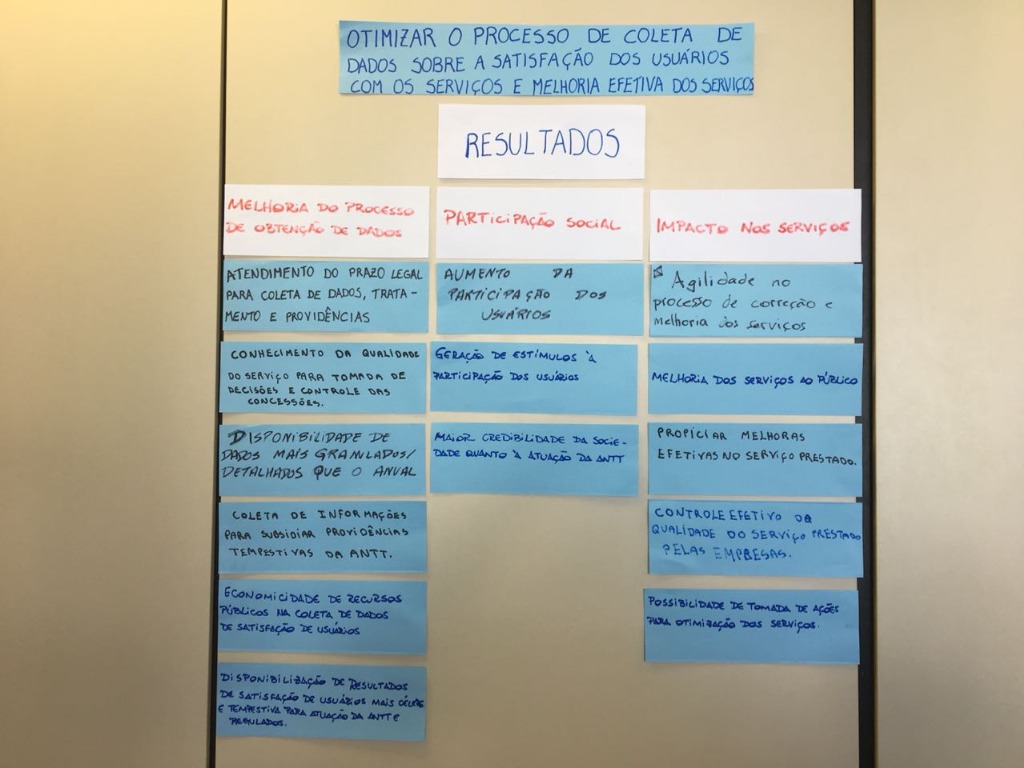 OTIMIZAR O PROCESSO DE COLETA DE
DADOS SOBRE A SATISFAÇÃO DOS USUÁRIOS
COM OS SERVIÇOS E MELHORIA EFETIVA DOS SERVIÇOS
RESULTADOS
MELHORIA DO PROCESSO
DE OBTENÇÃO DE DADOS
ATENDIMENTO DO PRAZO LEGAL
PARA COLETA DE DADOS, TRATA-
MENTO E PROVIDÊNCIAS
CONHECIMENTO DA QUALIDADE
DO SERVIÇO PARA TOMADA DE
DECISÕES E CONTROLE DAS
CONCESSÕES.
DISPONIBILIDADE DE
DADOS MAIS GRANULADOS/
DETALHADOS QUE O ANUAL
COLETA DE INFORMAÇÕES
PARA SUBSIDIAR PROVIDÊNCIAS
TEMPESTIVAS DA ANTT.
ECONOMICIDADE DE RECURSOS
PÚBLICOS NA COLETA DE DADOS
DE SATISFAÇÃO DE USUÁRIOS
DISPONIBILIZAÇÃO DE RESULTADOS
DE SATISFAÇÃO DE USUÁRIOS MAIS CÉLERE
E TEMPESTIVA PARA ATUAÇÃO DA ANTT E
REGULADOS.
PARTICIPAÇÃO SOCIAL
AUMENTO DA
PARTICIPAÇÃO DOS
USUÁRIOS
GERAÇÃO DE ESTÍMULOS À
PARTICIPAÇÃO DOS USUÁRIOS
MAIOR CREDIBILIDADE DA SOCIE-
DADE QUANTO À ATUAÇÃO DA ANTT
IMPACTO NOS SERVIÇOS
Agilidade no
processo de correção e
melhoria dos serviços
MELHORIA DOS SERVIÇOS AO PÚBLICO
PROPICIAR MELHORAS
EFETIVAS NO SERVIÇO PRESTADO.
CONTROLE EFETIVO DA
QUALIDADE DO SERVIÇO PRESTADO
PELAS EMPRESAS.
POSSIBILIDADE DE TOMADA DE AÇÕES
PARA OTIMIZAÇÃO DOS SERVIÇOS.